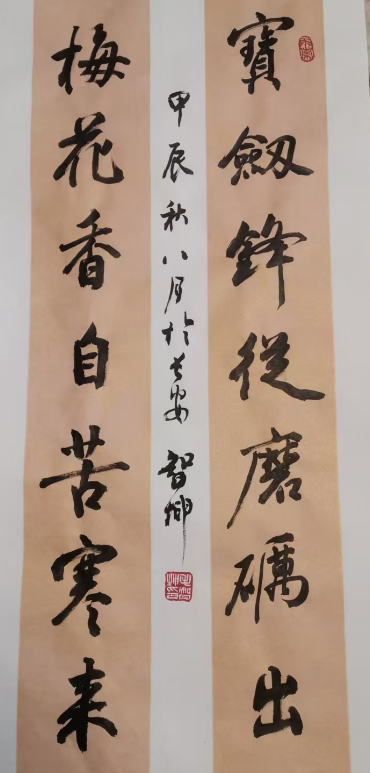 寶劔鋒從磨礪出
梅花香自苦寒来
甲辰秋八月於长安 智卿